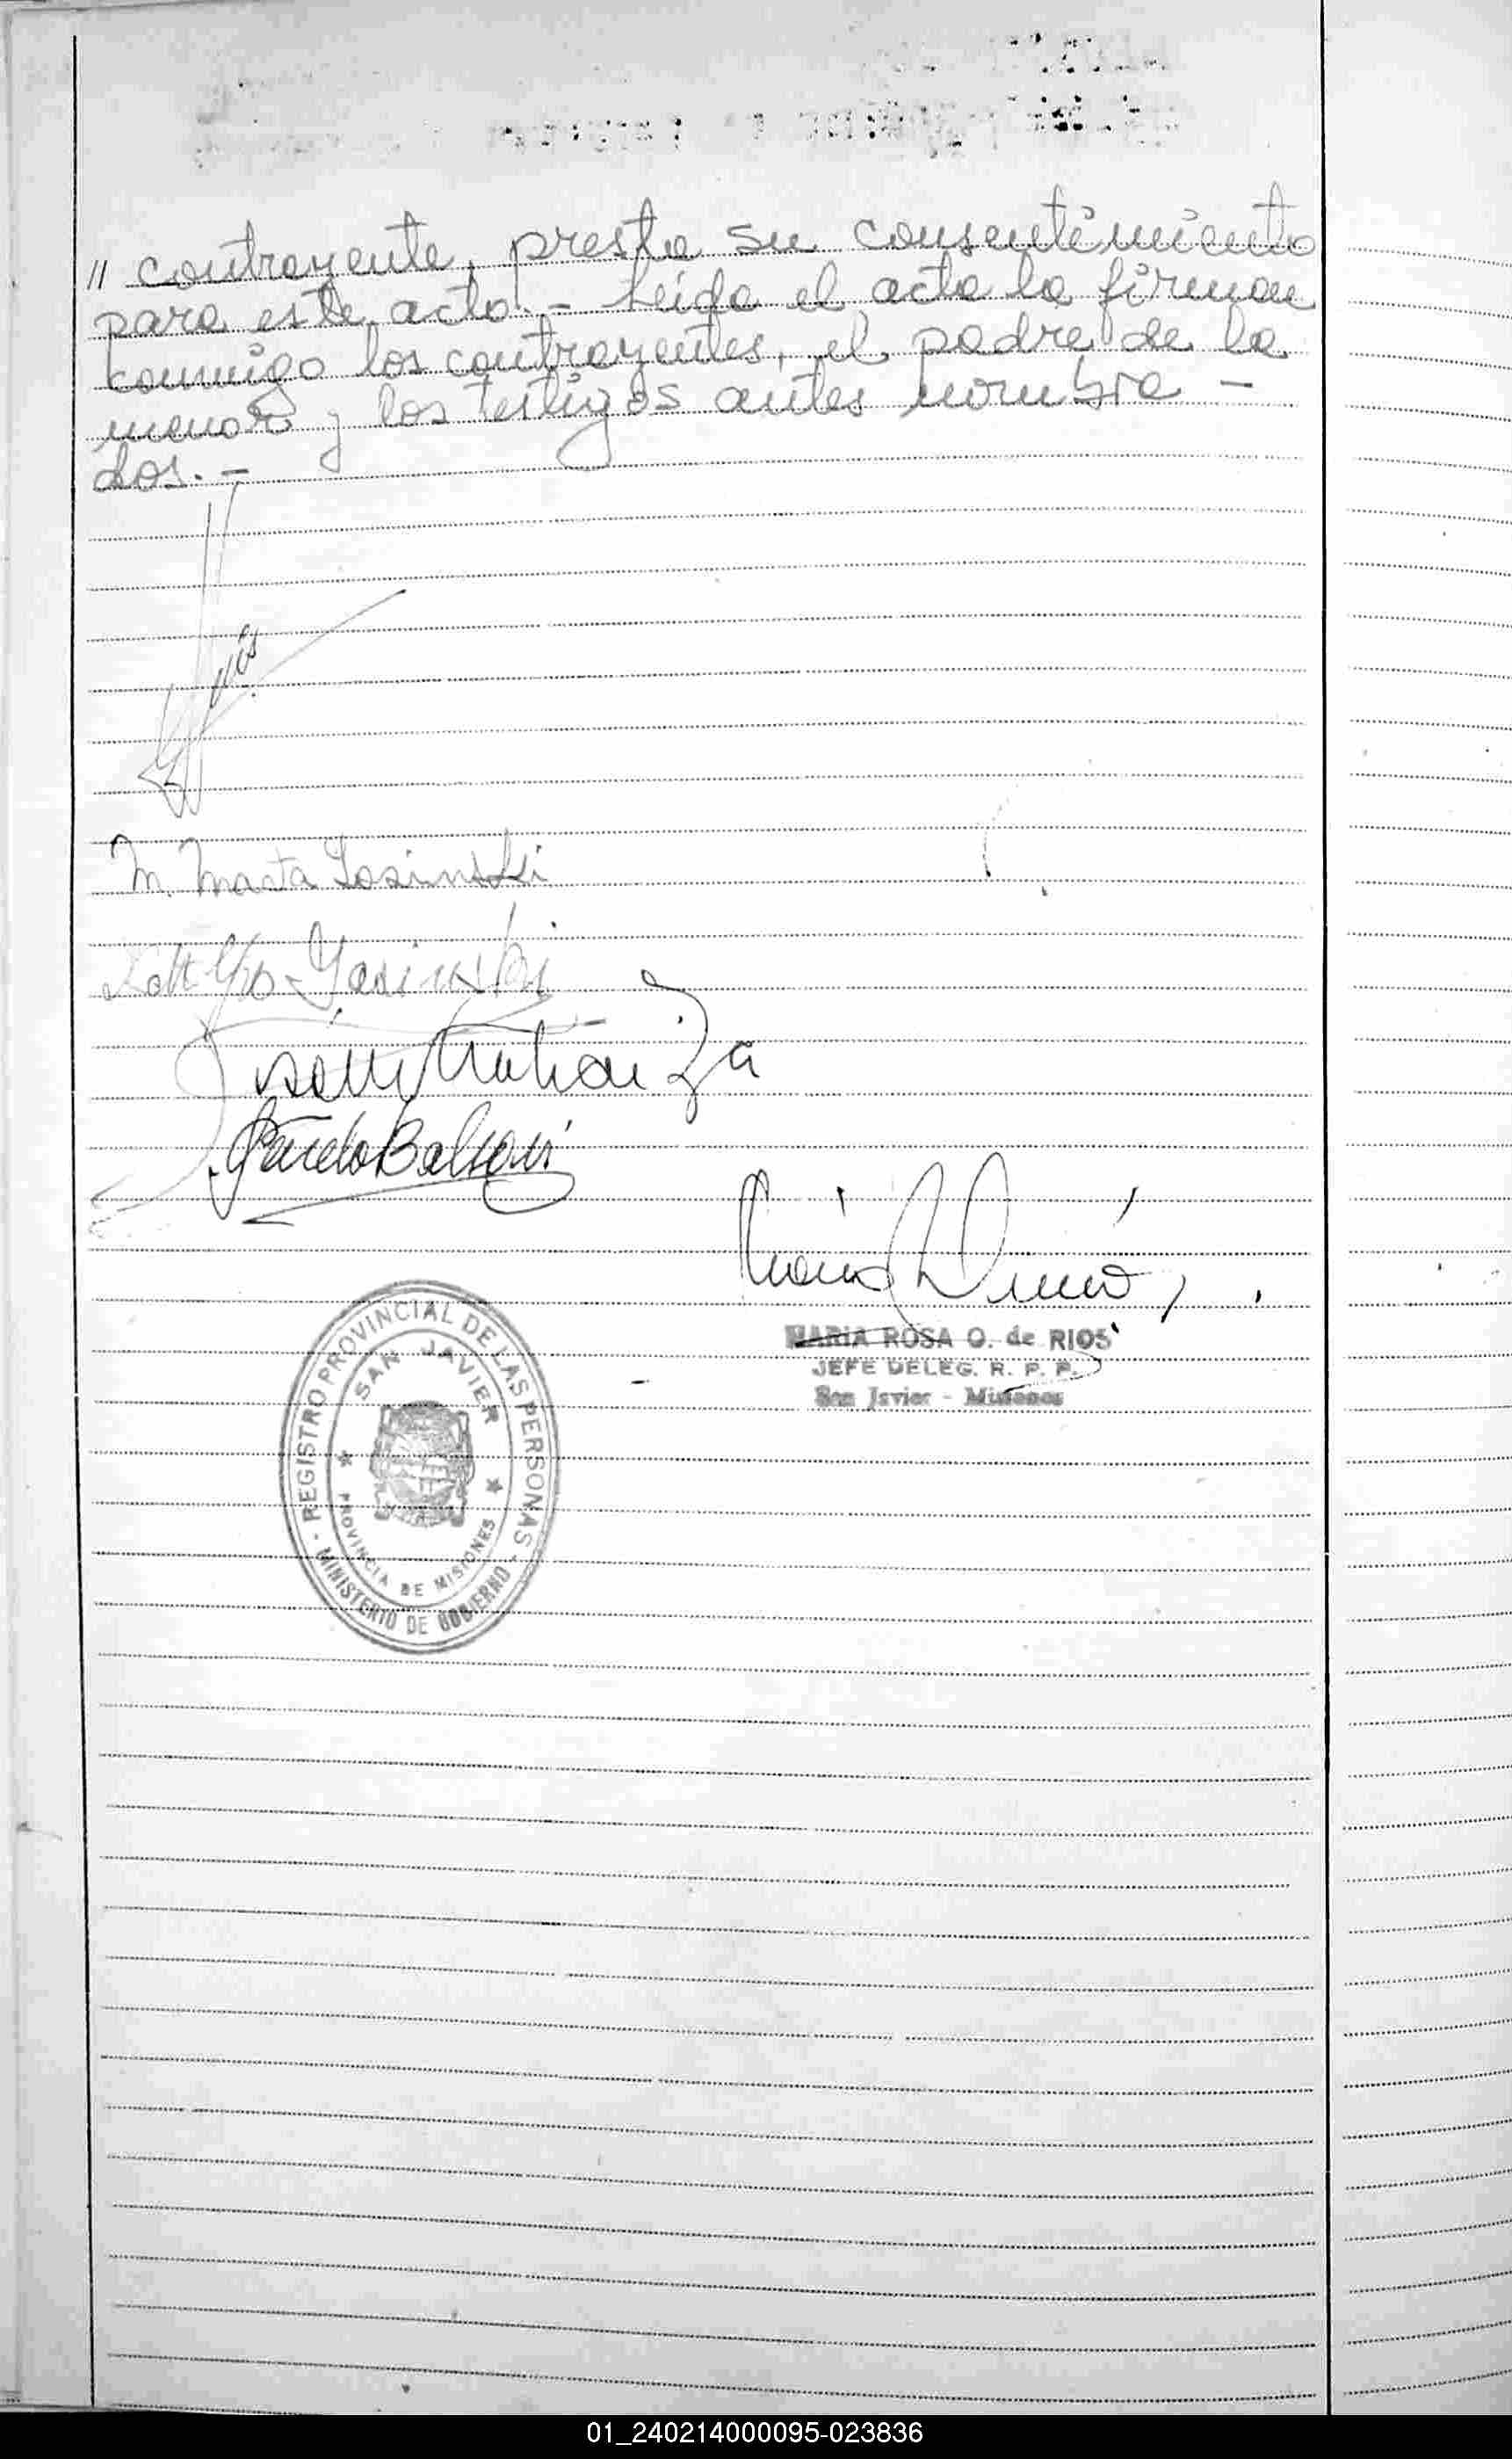 // contrayente, presta su consentimiento
para este acto.- Leída el acta la firman
conmigo los contrayentes, el padre de la
menor y los testigos antes nombra -
dos.-
M. Marta Yasinski
Yasinski
MARIA ROSA O. de RIOS
JEFE DELEG. R. P. P.
San Javier - Misiones
REGISTRO PROVINCIAL DE LAS PERSONAS
SAN JAVIER
PROVINCIA DE MISIONES
MINISTERIO DE GOBIERNO
01_240214000095-023836